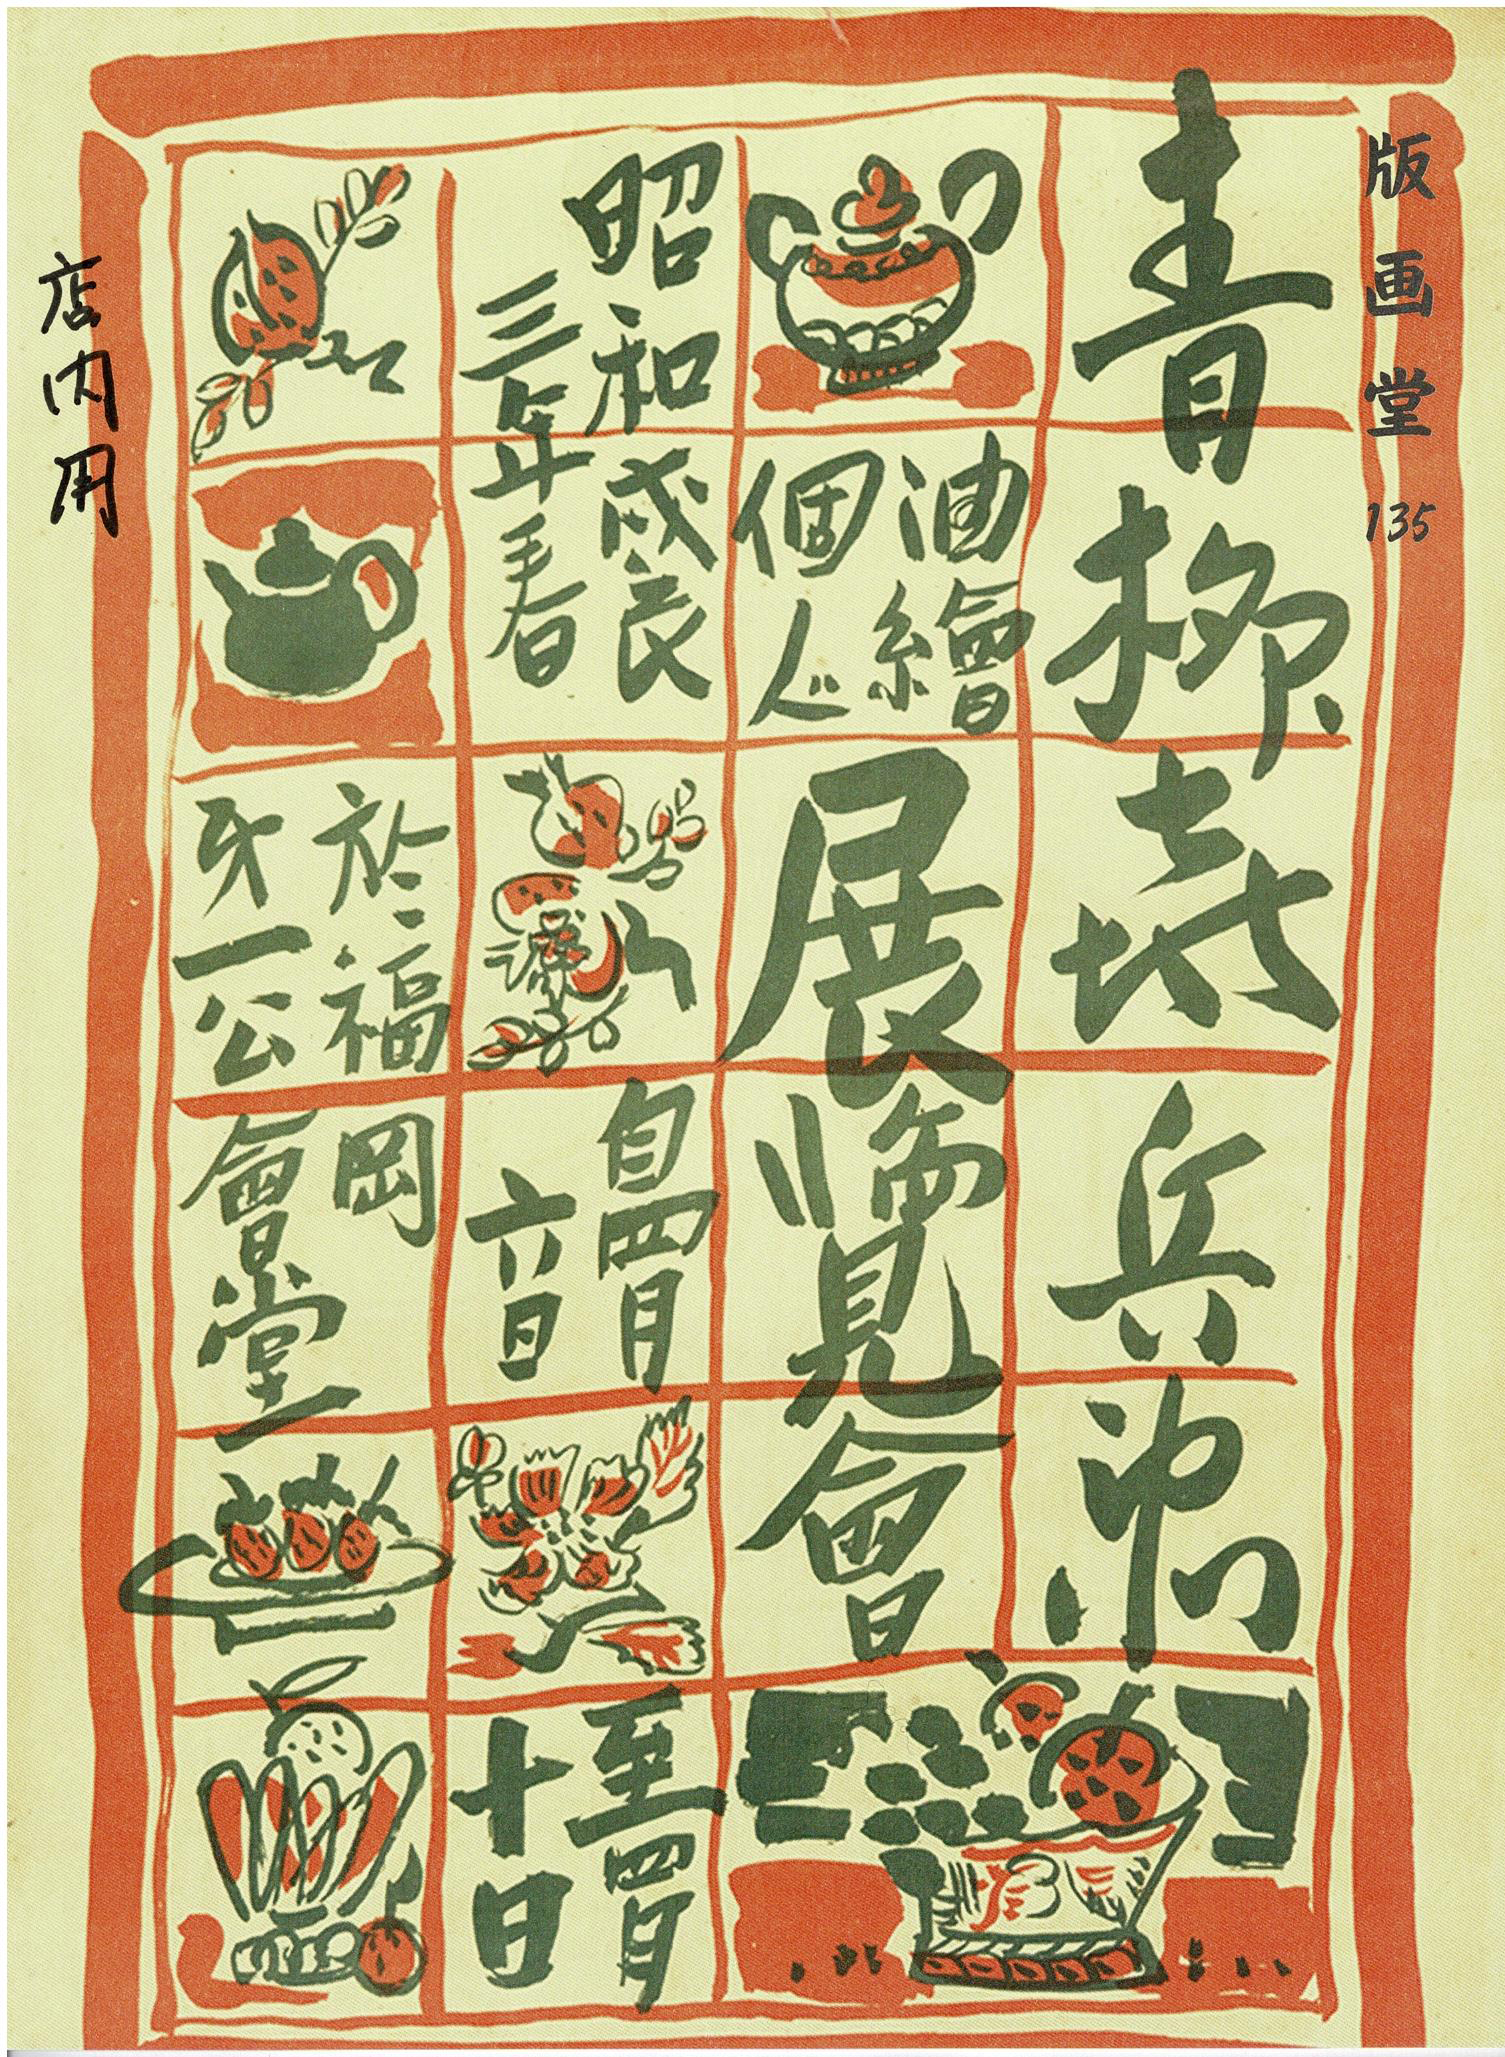 版画堂
135
青柳㐂兵衛
油繪
個人
展覽會
昭和戊辰
三年春
自四月
六日
至四月
十日
於福岡
第一公會堂
店内用